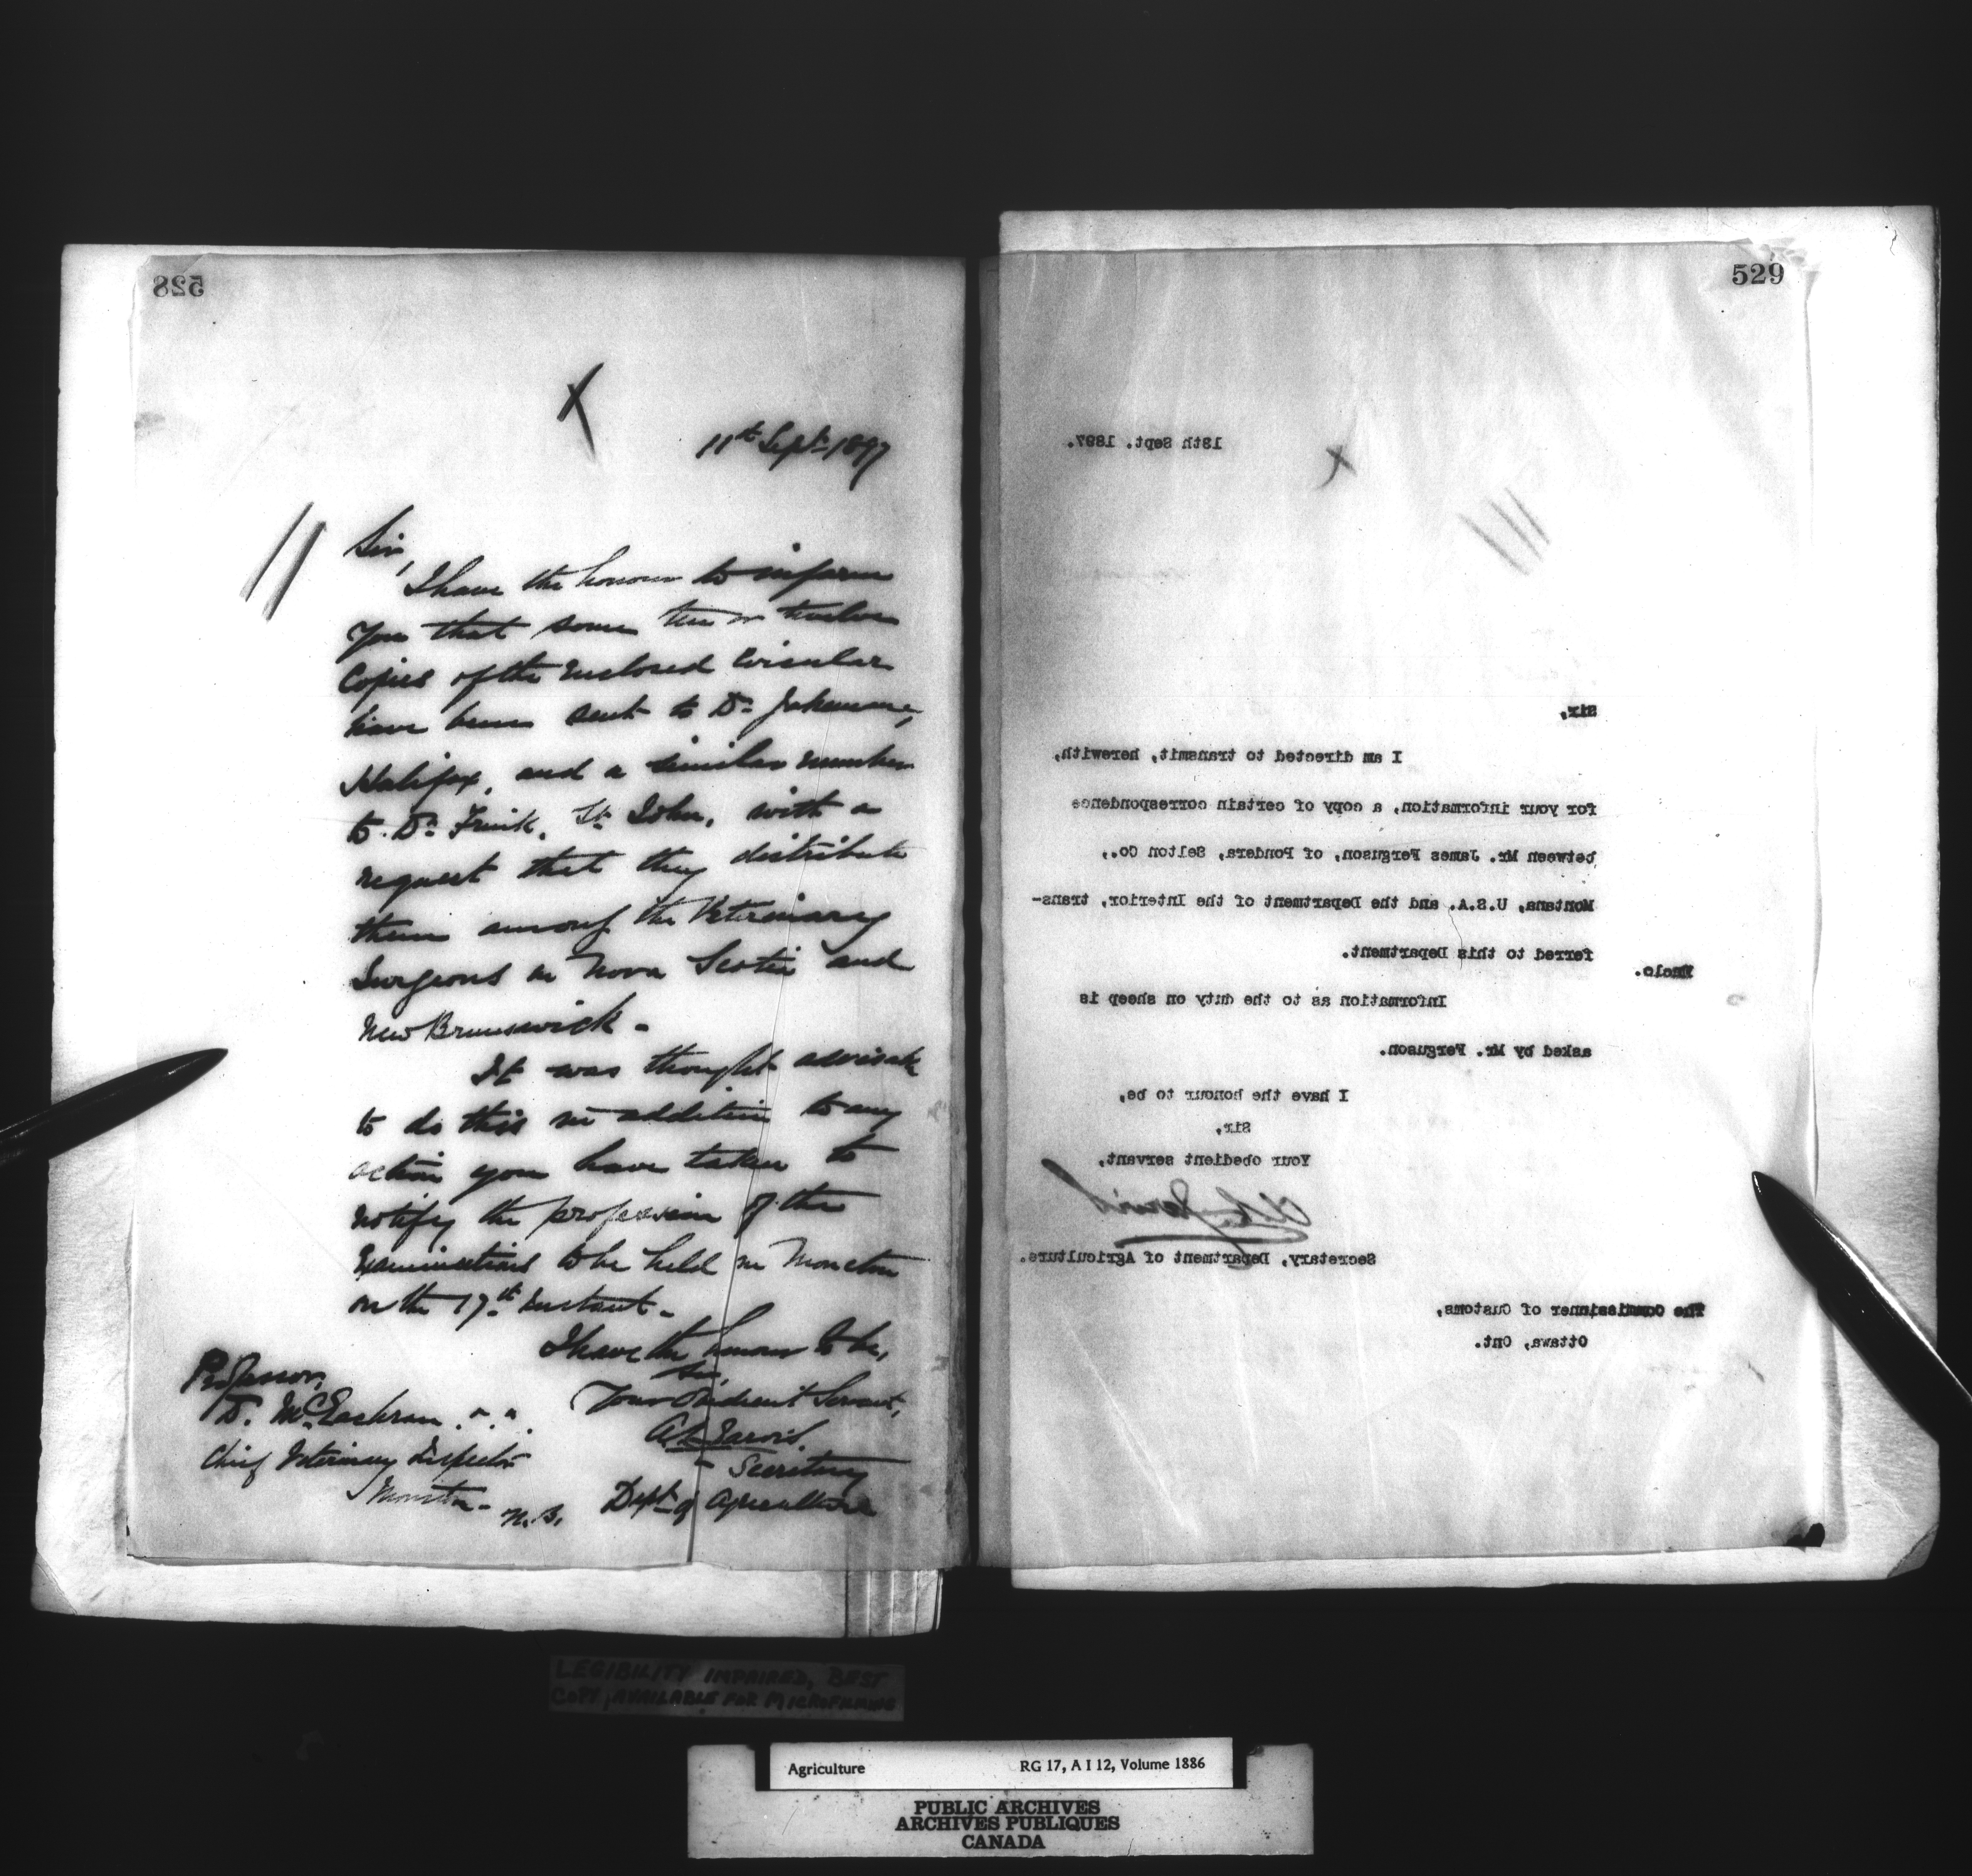 528
11th Sept. 1897
Sir,
I have the honour to inform
you that some ten or twelve
Copies of the enclosed Circular
have been sent to Dr. Jakeman,
Halifax, and a similar number
to Dr. Frink, St. John, with a
request that they distribute
them among the Veterinary
Surgeons in Nova Scotia and
New Brunswick.
It was thought advisable
to do this in addition to any
action you have taken to
notify the profession of the
Examinations to be held in Moncton
on the 17th instant.
I have the honour to be,
Sir,
Your Obedient Servant,
A L Jarvis,
Secretary
Dept. of Agriculture
Professor,
D. McEachran
Chief Veterinary Inspector
Moncton - N.B.
529
18th Sept. 1897.
Sir,
I am directed to transmit, herewith,
for your information, a copy of certain correspondence
between Mr. James Ferguson, of Pondera, Selton Co.,
Montana, U.S.A. and the Department of the Interior, trans-
ferred to this Department.
Enclo.
Information as to the duty on sheep is
asked by Mr. Ferguson.
I have the honour to be,
Sir,
Your obedient servant,
A L Jarvis
Secretary, Department of Agriculture.
The Commissioner of Customs,
Ottawa, Ont.
LEGIBILITY IMPAIRED, BEST
COPY AVAILABLE FOR MICROFILMING
Agriculture RG 17, A I 12, Volume 1886
PUBLIC ARCHIVES
ARCHIVES PUBLIQUES
CANADA